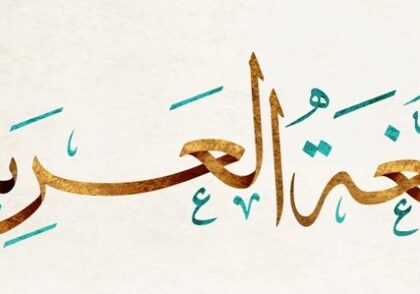 غة العرب